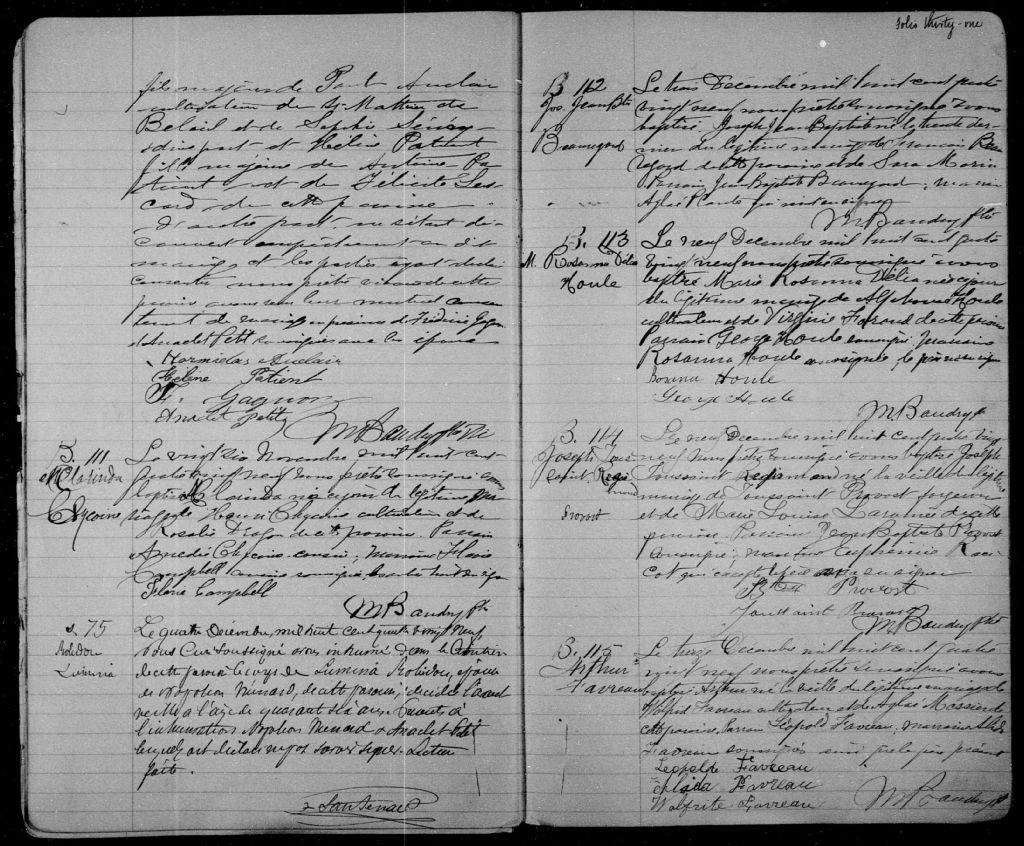 fils majeur de Paul Auclair
cultivateur de St Mathieu de
Beloeil et de Sophie
d'une part et Hélène Patient
fille majeure de Antoine Pa
tient et de Félicité
card de cette paroisse
d'autre part, ne s'étant dé
couvert empêchement au dit
mariage et les parties ayant
consenti nous prêtre vicaire de cette
paroisse avons reçu leur mutuel consen
tement de mariage en présence de Frédéric Gagnon
et Anaclet Petit soussignés avec les époux
Hormielas Auclair
Hélène Patient
F. Gagnon
Anaclet petit
M Baudry ptre
B. 111
M Clarinda
Le vingt six Novembre mil huit cent
quatre vingt neuf nous prêtre soussigné avons
baptisé M Clarinda née ce jour du légitime ma
riage de Henri cultivateur et de
Rosalie de cette paroisse Parrain
Amédée marraine Flavie
Campbell
Flavie Campbell
M Baudry ptre
S. 75
Robidou
Luminia
Le quatre Décembre, mil huit cent quatre vingt neuf,
nous Curé soussigné avons inhumé dans le Cimetière
de cette paroisse le corps de Lumina Robidou, épouse
de Napoléon Ménard, de cette paroisse; décédée l'avant
veille à l'âge de quarante six ans. Présents à
l'inhumation Napoléon Menard & Anaclet Petit
lesquels ont déclaré ne savoir signer. Lecture
faite.
folio thirty-one
B 112
Jos. Jean Bte
Beauregard
Le trois Décembre mil huit cent quatre
vingt neuf nous prêtre soussigné avons
baptisé Joseph Jean Baptiste né le trente der
nier du légitime mariage de Beau
regard de cette paroisse et de Sara Morin
Parrain Jean Baptiste Beauregard, marraine
Aglaé Plante qui n'ont su signer
M Baudry ptre
B. 113
M. Rosanna Délia
Houle
Le neuf Décembre mil huit cent quatre
vingt neuf nous prêtre soussigné avons
baptisé Marie Rosanna Délia née ce jour
du légitime mariage de Alphonse Houle
cultivateur et de Virginie de cette paroisse
Parrain George Houle soussigné, marraine
Rosanna Houle soussignée, le père
Rosana Houle
George Houle
M Baudry ptre
B. 114
Joseph Tous
saint Regi
mond
Provost
Le neuf Décembre mil huit cent quatre vingt
neuf nous prêtre soussigné avons baptisé Joseph
Toussaint Regimond né la veille du légitime
mariage de Toussaint Provost forgeron
et de Marie Louise de cette
paroisse. Parrain Jean Baptiste Provost
soussigné, marraine Euphémie Raci
cot qui
J Bte Provost
Toussaint Provost
M Baudry ptre
B. 115
Arthur
Favreau
Le treize Décembre mil huit cent quatre
vingt neuf nous prêtre soussigné avons
baptisé Arthur né la veille du légitime mariage de
Wilfrid Favreau cultivateur et de Aglaé de
cette paroisse, Parrain Léopold Favreau, marraine
Favreau soussignés ainsi que le père présent
Leopolde Favreau
Favreau
Wolfride Favreau
M Baudry ptre